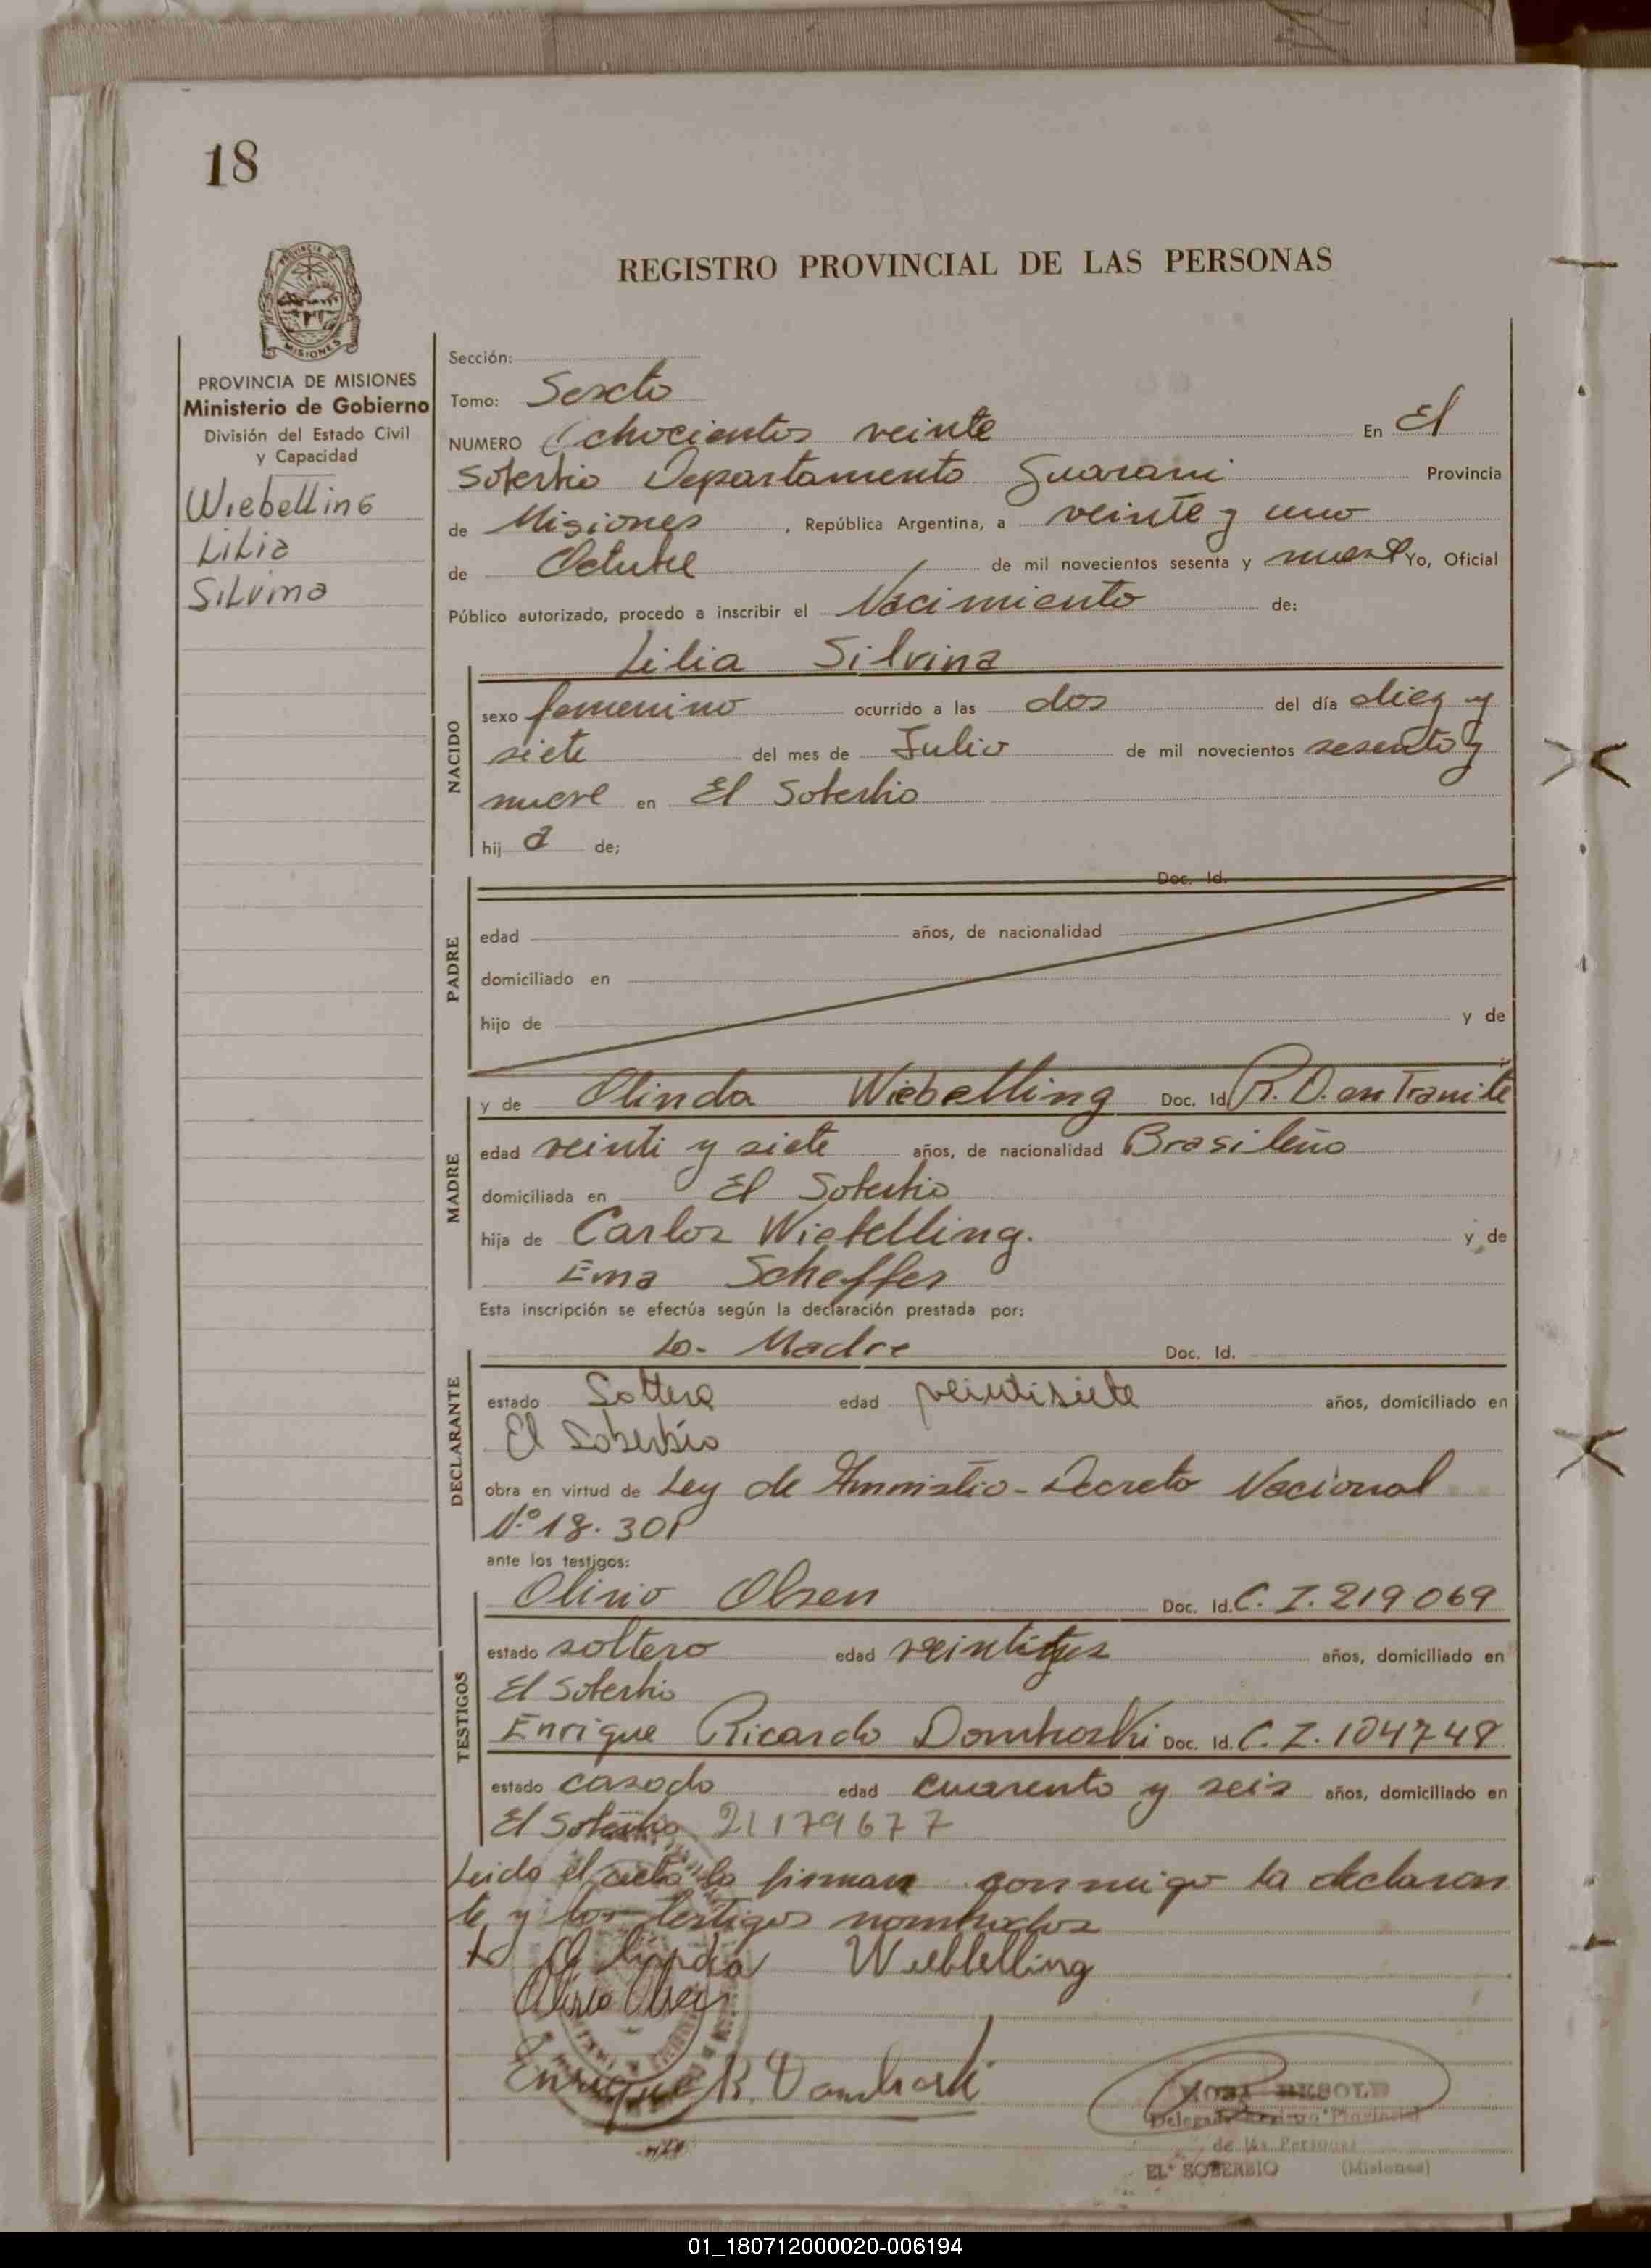 18
PROVINCIA DE
MISIONES
REGISTRO PROVINCIAL DE LAS PERSONAS
PROVINCIA DE MISIONES
Ministerio de Gobierno
División del Estado Civil
y Capacidad
Wiebelling
Lilia
Silvina
Sección:
Tomo: Sexto
NUMERO Ochocientos veinte En El
Soberbio Departamento Guarani Provincia
de Misiones , República Argentina, a veinte y uno
de Octubre de mil novecientos sesenta y nueve Yo, Oficial
Público autorizado, procedo a inscribir el Nacimiento de:
Lilia Silvina
NACIDO
sexo femenino ocurrido a las dos del día diez y
siete del mes de Julio de mil novecientos sesenta y
nueve en El Soberbio
hij a de;
PADRE
Doc. Id.
edad años, de nacionalidad
domiciliado en
hijo de y de
MADRE
y de Olinda Wiebelling Doc. Id. R. D. en Tramite
edad veinti y siete años, de nacionalidad Brasileña
domiciliada en El Soberbio
hija de Carlos Wiebelling. y de
Ema Scheffer
Esta inscripción se efectúa según la declaración prestada por:
DECLARANTE
La - Madre Doc. Id.
estado Soltera edad veintisiete años, domiciliado en
El Soberbio
obra en virtud de Ley de Amnistia - Decreto Nacional
N.º 18.301
ante los testigos:
TESTIGOS
Olirio Olsen Doc. Id. C. I. 219.069
estado soltero edad años, domiciliado en
El Soberbio
Enrique Ricardo Domhoski Doc. Id. C. I. 104748
estado casado edad cuarenta y seis años, domiciliado en
El Soberbio 21179677
Leida el acta la firman conmigo la declaran
te y los testigos nombrados
Olinda Wiebbelling
Olirio Olsen
Enrique R. Domhoski
Delegada Registro Provincial
de las Personas
EL SOBERBIO (Misiones)
01_180712000020-006194